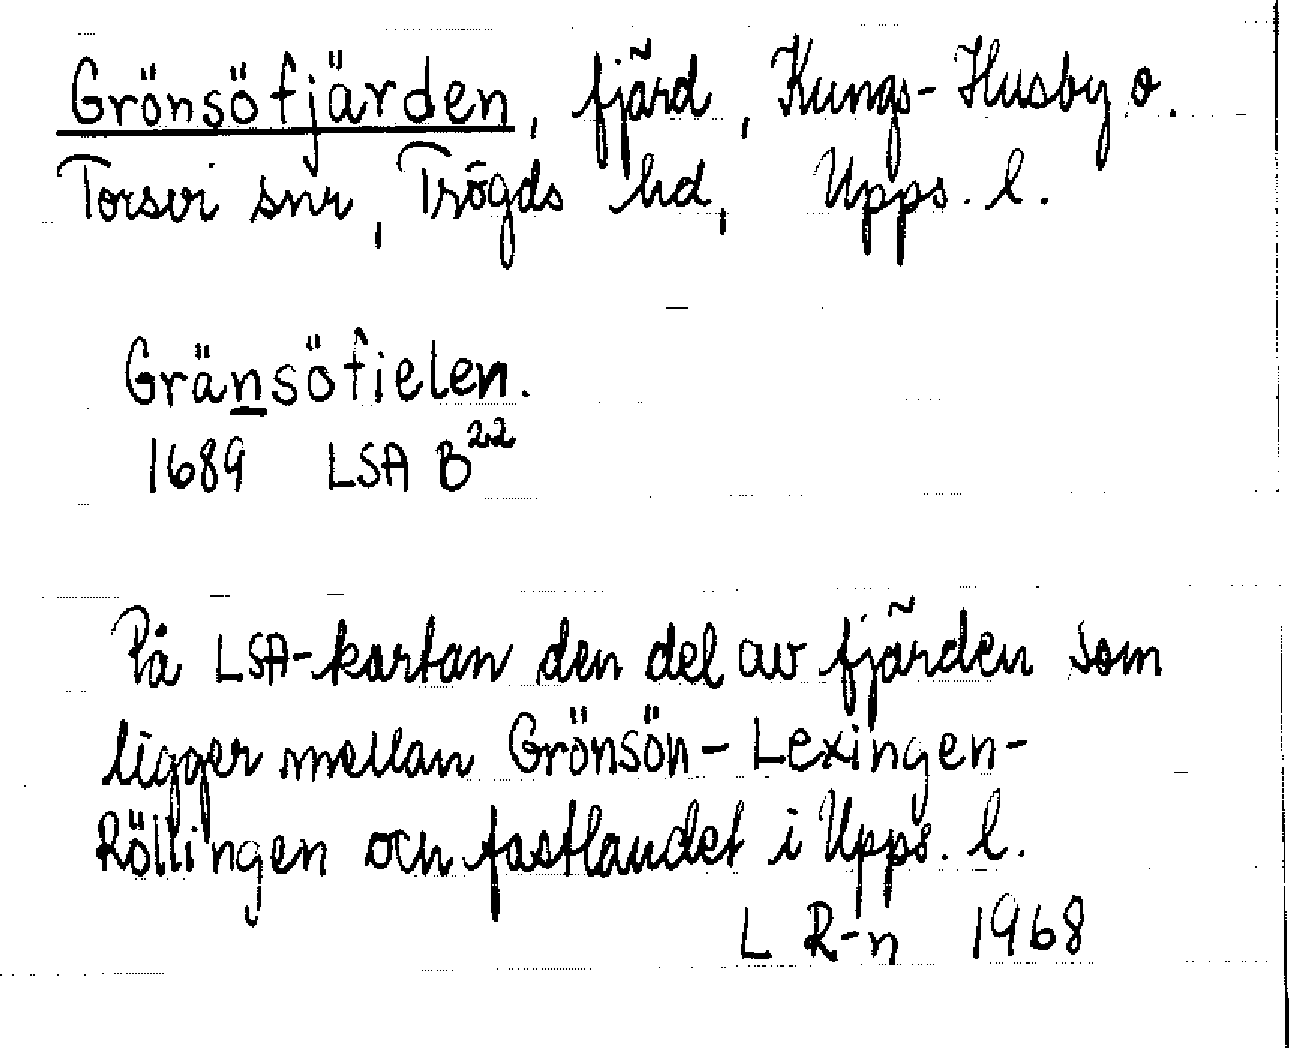 Grönsöfjärden, fjärd, Kungs-Husby o.
Torsvi snr, Trögds hd, Upps. l.
Gränsöfielen.
1689 LSA B22
På LSA-kartan den del av fjärden som
ligger mellan Grönsön-Lexingen-
Röllingen och fastlandet i Upps. l.
L R-n 1968